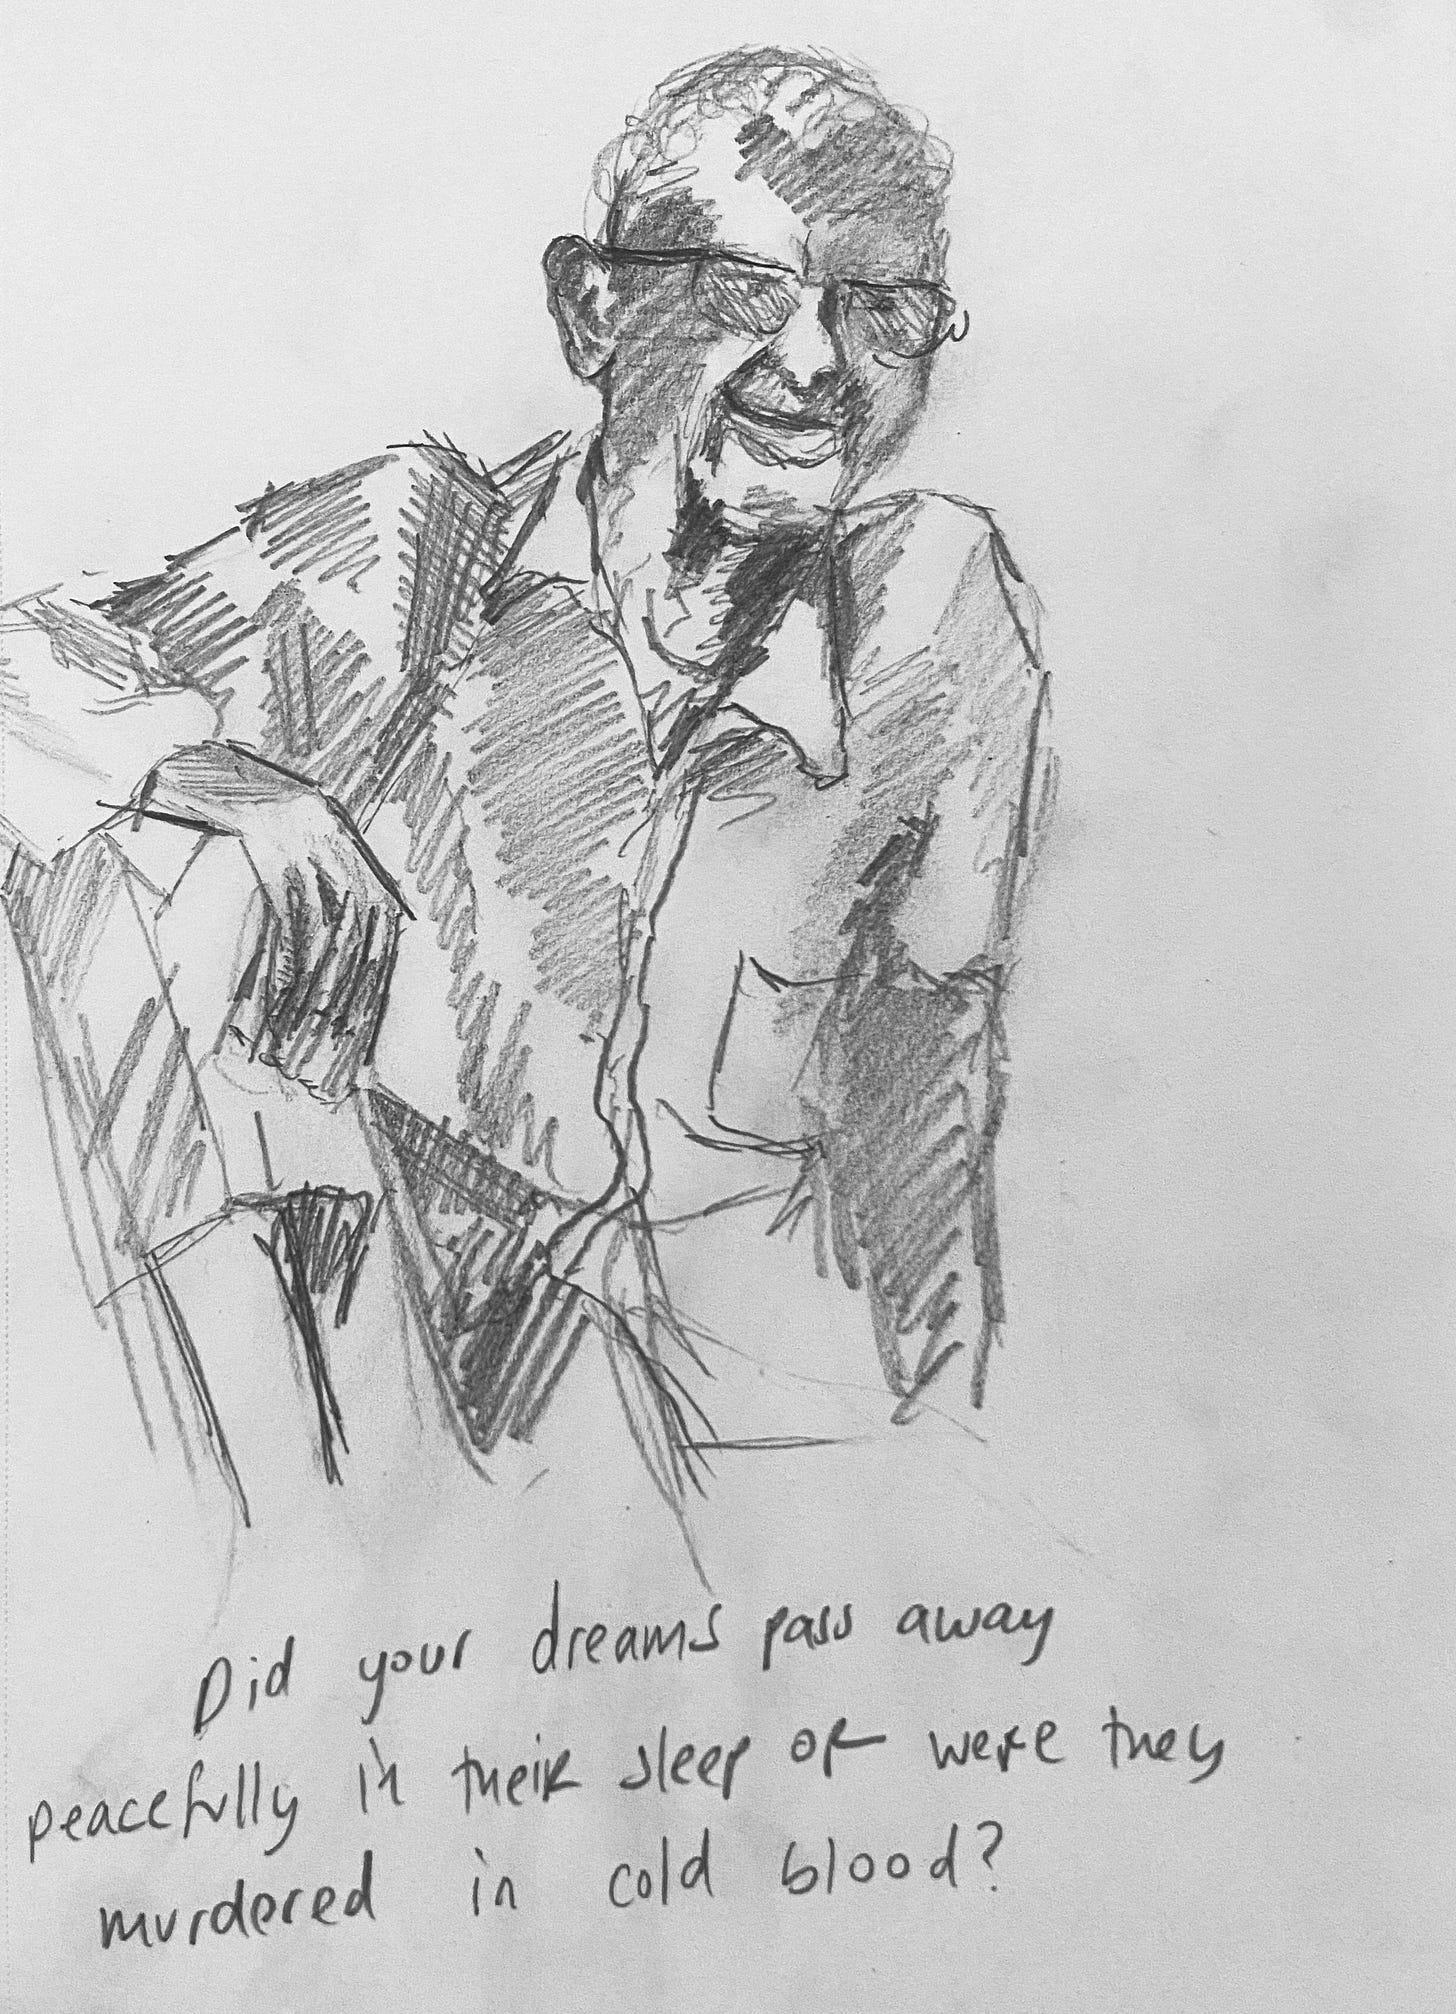 Did your dreams pass away
peacefully in their sleep or were they
murdered in cold blood?